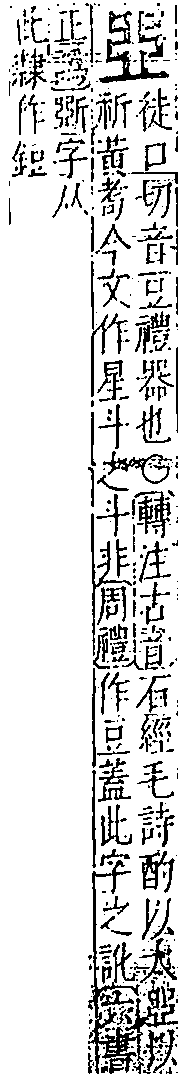 徒口切音豆禮器也○轉注古音石經毛詩酌以大以
祈黃耇今文作星斗之斗非周禮作豆蓋此字之訛六書
正譌斲字从
此隸作